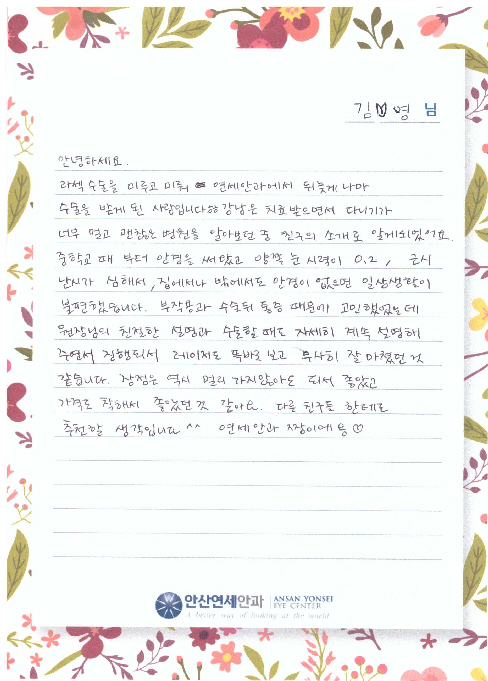 김♡영 님
안녕하세요.
라섹 수술을 미루고 미뤄 연세안과에서 뒤늦게 나마
수술을 받게 된 사람입니다 강남은 치료받으면서 다니기가
너무 멀고 괜찮은 병원을 알아보던 중 친구의 소개로 알게되었어요.
중학교 때 부터 안경을 써 왔고 양쪽 눈 시력이 0.2, 근시
난시가 심해서, 집에서나 밖에서도 안경이 없으면 일상생활이
불편했습니다. 부작용과 수술뒤 통증 때문에 고민했었는데
원장님의 친절한 설명과 수술할 때도 자세히 계속 설명해
주면서 진행되서 레이저도 똑바로 보고 무사히 잘 마쳤던 것
같습니다. 장점은 역시 멀리 가지않아도 되서 좋았고
가격도 착해서 좋았던 것 같아요. 다른 친구들 한테도
추천할 생각입니다 ^^ 연세안과 짱이에용 ♡
안산연세안과 ANSAN YONSEI
EYE CENTER
A better way of looking at the world